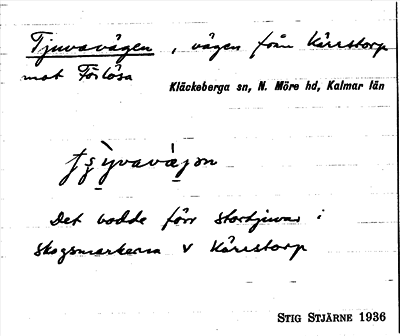 Tjuvavägen, vägen från Kärrstorp
mot Förlösa
Kläckeberga sn, N. Möre hd, Kalmar län
Det bodde förr stortjuvar i
skogsmarkerna v Kärrstorp
STIG STJÄRNE 1936